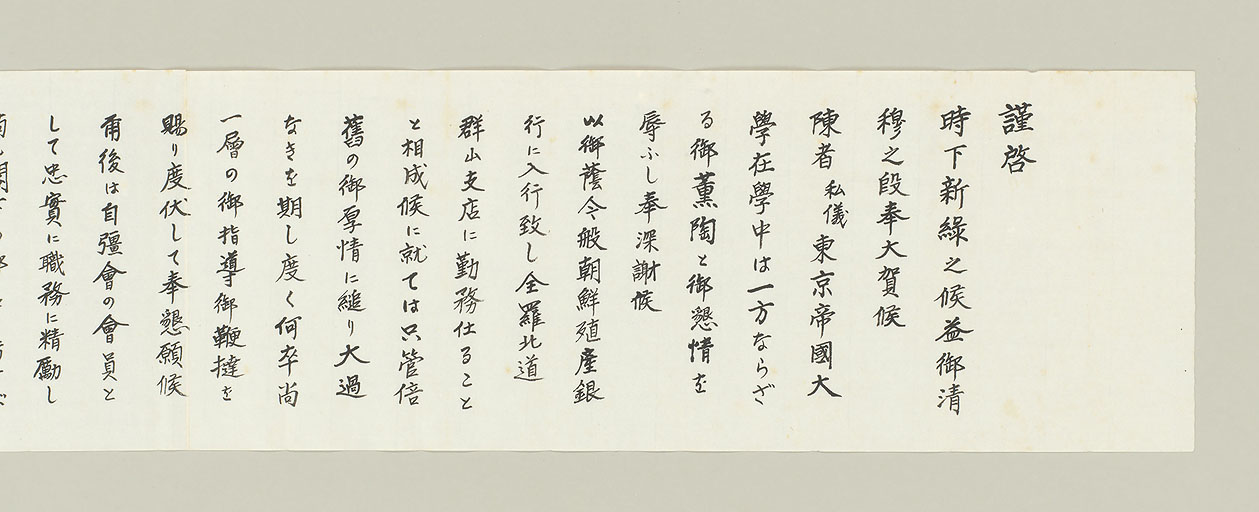 謹啓
時下新綠之候益御清
穆之段奉大賀候
陳者私儀東京帝國大
學在學中は一方ならざ
る御薫陶と御懇情を
辱ふし奉深謝候
以御蔭今般朝鮮殖産銀
行に入行致し全羅北道
群山支店に勤務仕ること
と相成候に就ては只管倍
舊の御厚情に縋り大過
なきを期し度く何卒尚
一層の御指導御鞭撻を
賜り度伏して奉懇願候
甭後は自彊會の會員と
して忠實に職務に精勵し